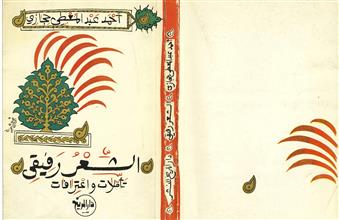 أحمد عبد المعطي حجازي
الشعر رفيقي
تأملات واعترافات
دار المريخ
أحمد عبد المعطي حجازي
الشعر رفيقي
دار المريخ للنشر